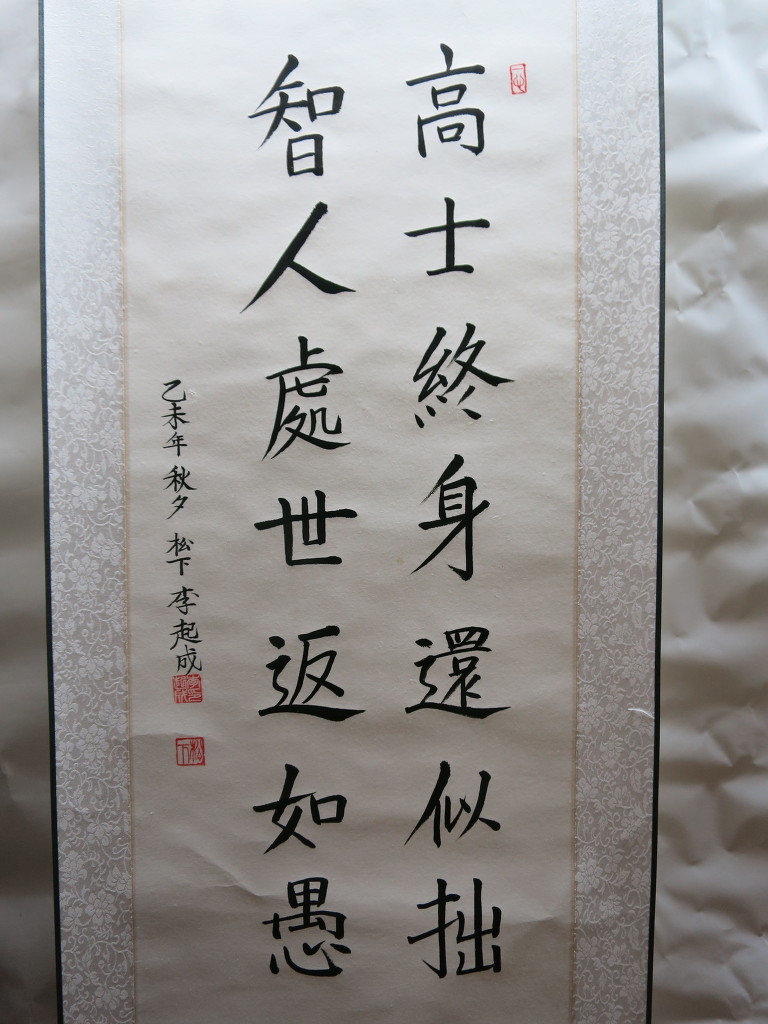 高士終身還似拙
智人處世返如愚
乙未年秋夕 松下 李起成
松下